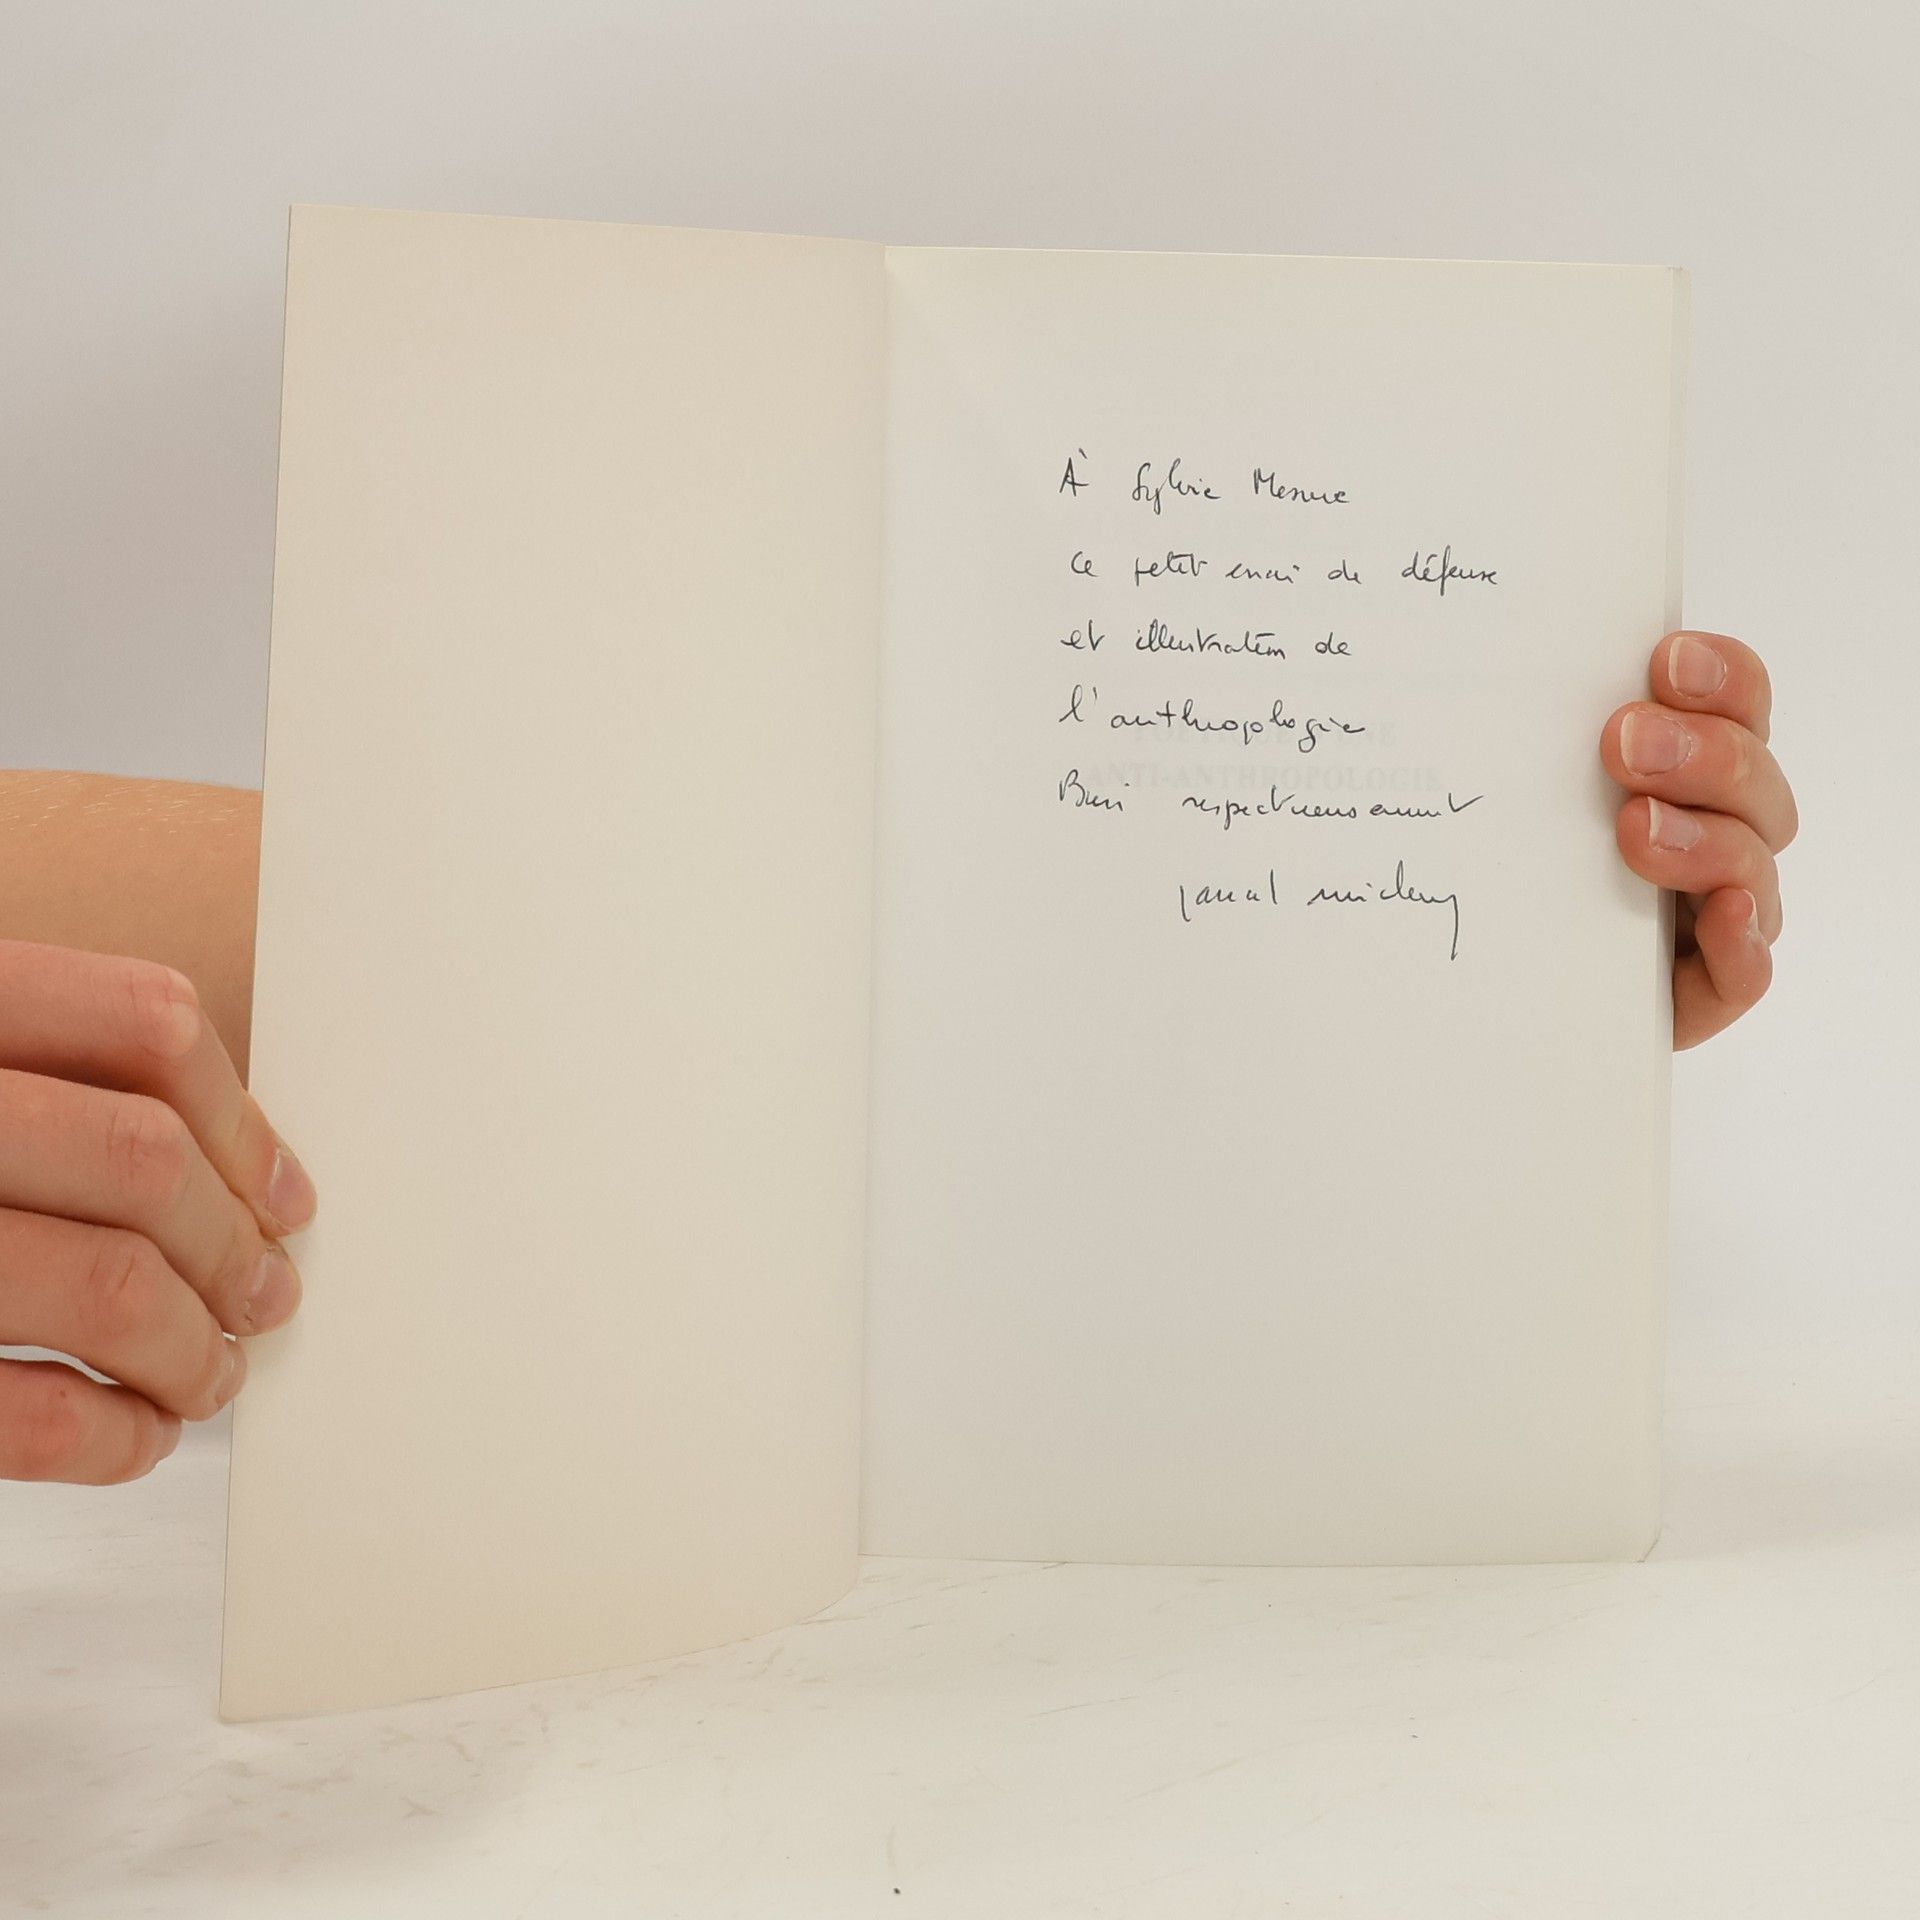 À Sylvie Mesure
ce petit essai de défense
et illustration de
l'anthropologie
Bien respectueusement
pascal michon
ANTI-ANTHROPOLOGIE